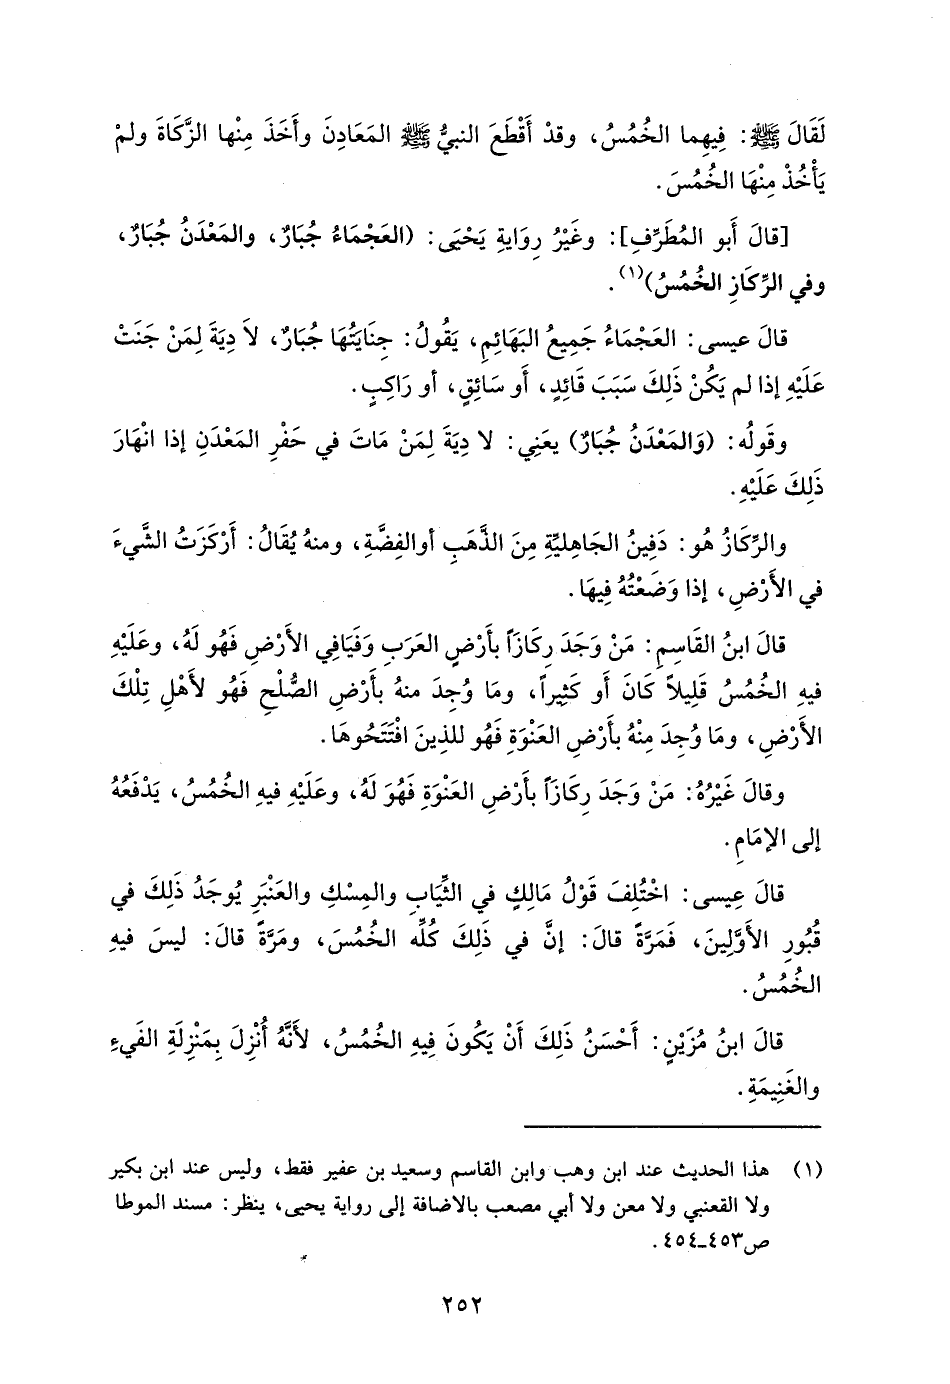 لَقَالَ ﷺ: فِيهِما الخُمُسُ، وقدْ أَقْطَعَ النبيُّ ﷺ المَعَادِنَ وأَخَذَ مِنْها الزَّكَاةَ ولمْ
يَأْخُذْ مِنْهَا الخُمُسَ.
[قالَ أَبو المُطَرِّفِ]: وغَيْرُ رِوَايةِ يَحْيَى: (العَجْمَاءُ جُبَارٌ، والمَعْدَنُ جُبَارٌ،
وفي الرِّكَازِ الخُمُسُ)(١).
قالَ عيسى: العَجْمَاءُ جَمِيعُ البَهَائِمِ، يَقُولُ: جِنَايَتُهَا جُبَارٌ، لاَ دِيَةَ لِمَنْ جَنَتْ
عَلَيْهِ إذا لم يَكُنْ ذَلِكَ سَبَبَ قَائِدٍ، أَو سَائِقٍ، أو رَاكِبٍ.
وقَولُه: (وَالمَعْدَنُ جُبَارٌ) يعَنِي: لا دِيَةَ لِمَنْ مَاتَ في حَفْرِ المَعْدَنِ إذا انْهَارَ
ذَلِكَ عَلَيْهِ.
والرِّكَازُ هُو: دَفِينُ الجَاهِليَّةِ مِنَ الذَّهَبِ أوالفِضَّةِ، ومنهُ يُقَالُ: أَرْكَزَتُ الشَّيءَ
في الأَرْضِ، إذا وَضَعْتُهُ فِيهَا.
قالَ ابنُ القَاسِمِ: مَنْ وَجَدَ رِكَازَاً بأَرْضِ العَرَبِ وَفَيَافِي الأَرْضِ فَهُو لَهُ، وعَلَيْهِ
فيهِ الخُمُسُ قَلِيلاً كَانَ أَو كَثِيراً، ومَا وُجِدَ منهُ بأَرْضِ الصُّلْحِ فَهُو لأَهْلِ تِلْكَ
الأَرْضِ، ومَا وُجِدَ مِنْهُ بأَرْضِ العَنْوَةِ فَهُو للذِينَ افْتَتَحُوهَا.
وقالَ غَيْرُهُ: مَنْ وَجَدَ رِكَازَاً بأَرْضِ العَنْوَةِ فَهُوَ لَهُ، وعَلَيْهِ فيهِ الخُمُسُ، يَدْفَعُهُ
إلى الإمَامِ.
قالَ عِيسى: اخْتُلِفَ قَوْلُ مَالِكٍ في الثِّيَابِ والمِسْكِ والعَنْبَرِ يُوجَدُ ذَلِكَ في
قُبُورِ الأَوَّلِينَ، فَمَرَّةً قالَ: إنَّ في ذَلِكَ كُلِّه الخُمُسَ، ومَرَّةً قالَ: ليسَ فيهِ
الخُمُسُ.
قالَ ابنُ مُزَيْنٍ: أَحْسَنُ ذَلِكَ أَنْ يَكُونَ فِيهِ الخُمُسُ، لأَنَّهُ أُنْزِلَ بِمَنْزِلَةِ الفَيءِ
والغَنِيمَةِ.
(١) هذا الحديث عند ابن وهب وابن القاسم وسعيد بن عفير فقط، وليس عند ابن بكير
ولا القعنبي ولا معن ولا أبي مصعب بالاضافة إلى رواية يحيى، ينظر: مسند الموطا
ص٤٥٣_٤٥٤.
٢٥٢